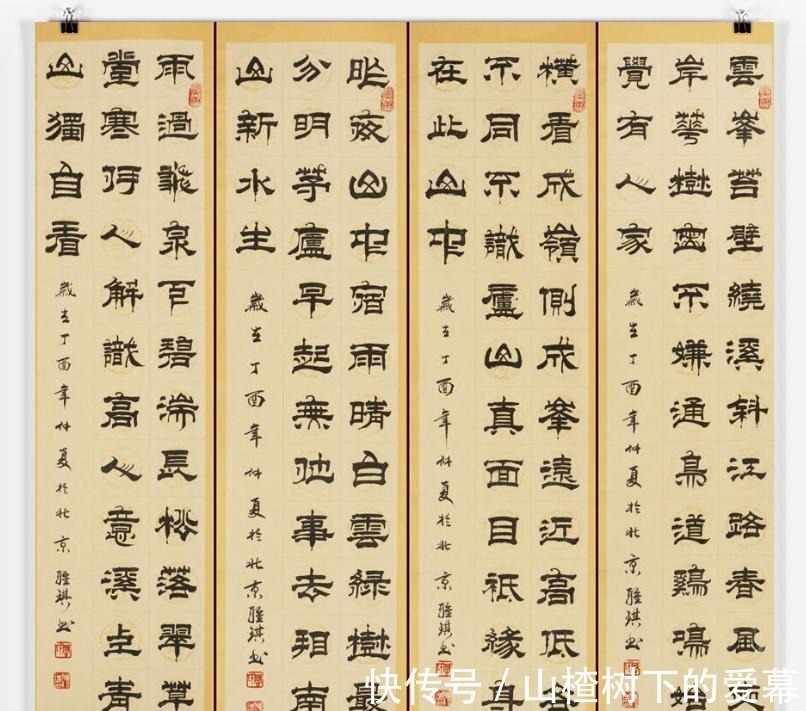 雲峯苔壁繞溪斜江路春風
岸華樹密不嫌通鳥道鷄鳴
覺有人家
歲在丁酉年仲夏於北京 琪書
橫看成嶺側成峯遠近高低
不同不識廬山真面目祇緣身
在此山中
歲在丁酉年仲夏於北京 琪書
昨夜山中宿雨晴白雲綠樹最
分明茅廬早起無他事去相南
山新水生
歲在丁酉年仲夏於北京 琪書
雨過龍泉百碧湍長松落翠草
堂寒何人解識高人意溪上青
山獨自看
歲在丁酉年仲夏於北京 琪書
快传号 / 山楂树下的爱幕